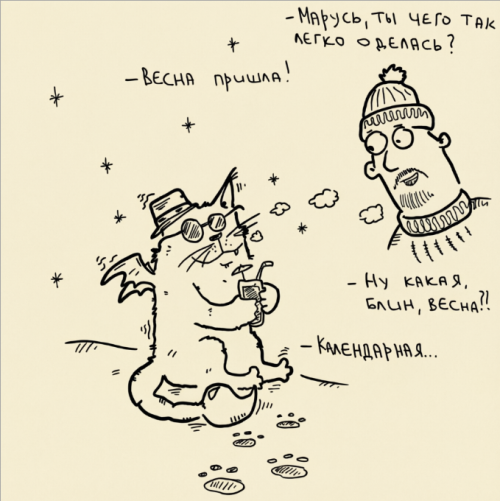 - Марусь, ты чего так
легко оделась?
- Весна пришла!
- Ну какая,
блин, весна?!
- Календарная...